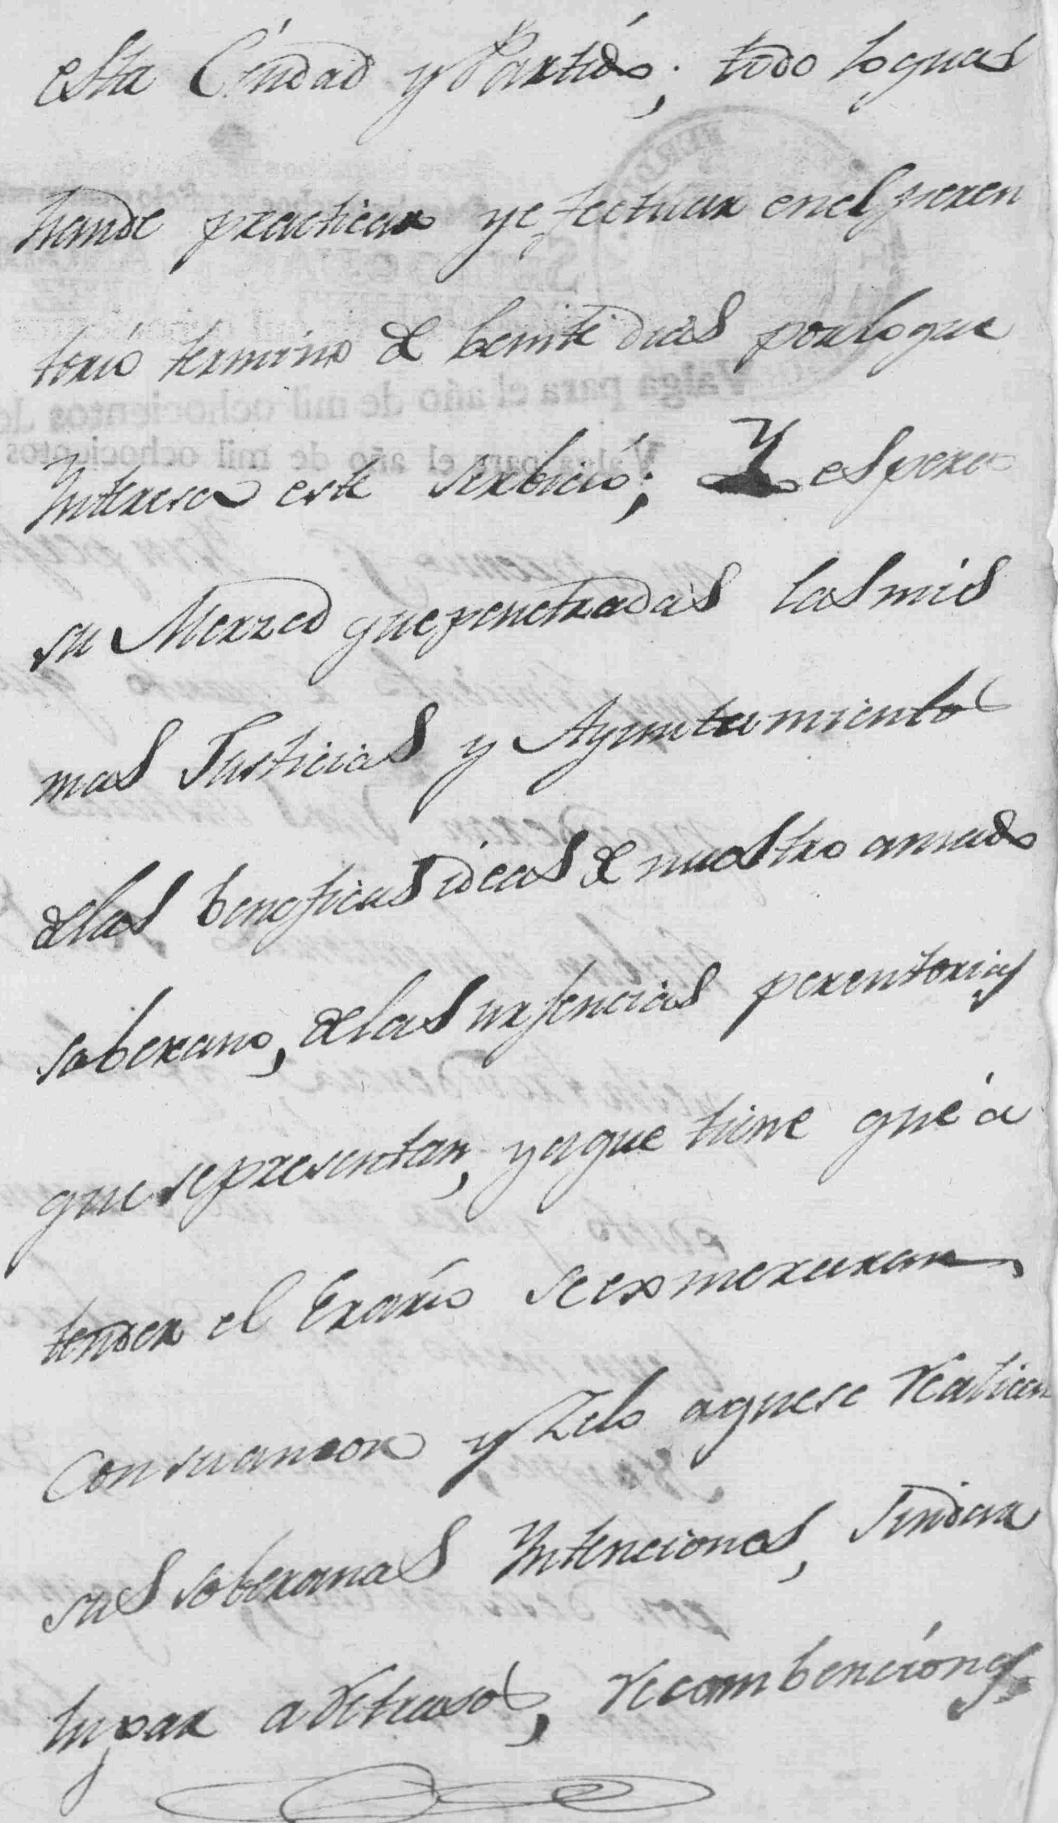 esta Ciudad y Partido; todo lo qual
hande practicar y efectuar enel peren
torio termino de beinte dias porloque
Interesa este serbicio; Y espera
su Merzed quepenetradas las mis
mas Justicias y Ayuntamientos
delas beneficas ideas de nuestro amado
soberano, delas urjencias perentorias
que sepresentan, yaque tiene que á
tender el Erario seexmeraran
Consuamor y Zelo aquese realicen
sus soberanas Intenciones, sindar
lugar a retrasos, recombenciones,
Valga para el año de mil ochocientos
Valga para el año de mil ochocientos